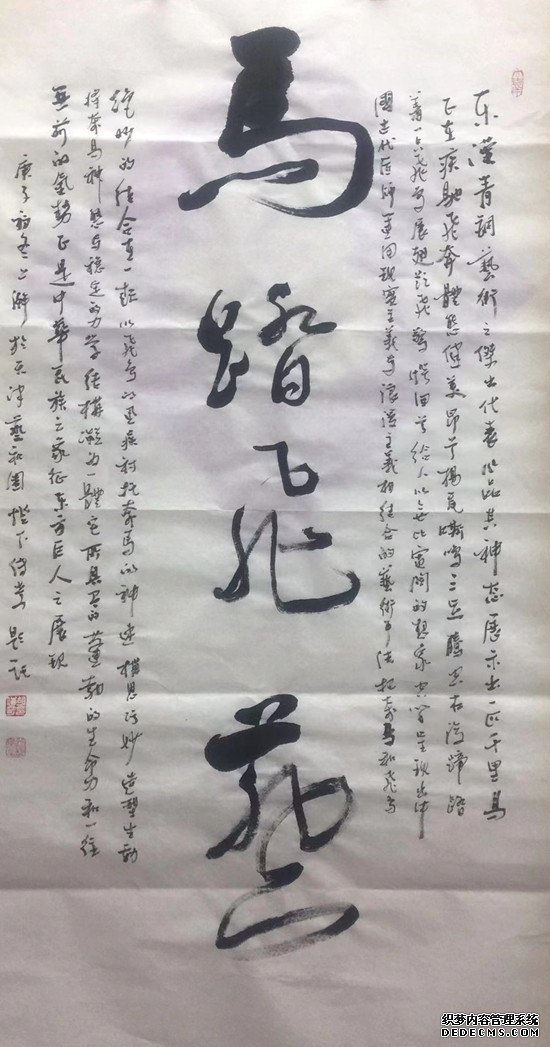 东漢青铜藝術之傑出代表作品其神态展示出一匹千里馬
正在疾馳飛奔體態健美昂首揚尾嘶鳴三足騰空右後蹄踏
着一只飛鳥展翅欲飛驚愕回首給人以無比寬闊的想象空間呈現出中
國古代匠師運用現實主義与浪漫主義相結合的藝術手法把奔馬和飛鳥
馬踏飛燕
絕妙的結合在一起以飛鳥的迅疾襯托奔馬的神速構思巧妙造型生動
將奔馬神態与穩定的力學結構凝為一體它所具有的蓬勃的生命力和一往
無前的氣勢正是中華民族之象征東方巨人之展現
庚子初冬上浣於天津藝和園 題記
织梦内容管理系统
DEDECMS.COM